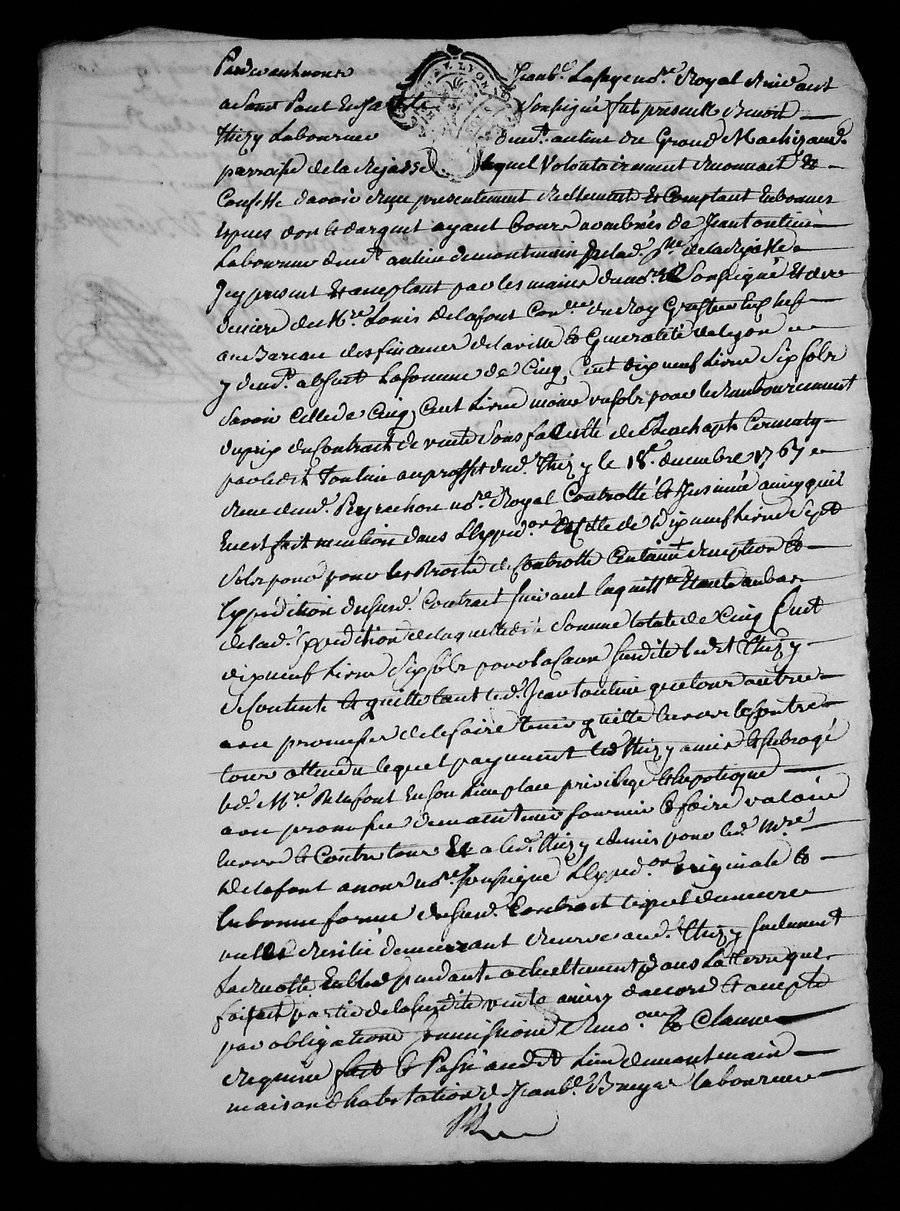 Pardevant nous Jean b.te Lafaye no.re Royal Reservé
a Saint Paul En Jarest Soussigné fut present Benoit
Thizy Laboureur dem.t au lieu du Grand Machizaud
parroisse de la Rejasse lequel Volontairement Reconnait Et
Confesse d'avoir Reçu presentement Reellement Et Comptant En bonnes
Especes d'or Et d'argent ayant Cours Nombrés de Jean toulieu
Laboureur dem.t au lieu de montmain susd. p.sse de la Rejasse
Icy present Et acceptant par les mains du no.re Soussigné Et des
deniers de M.re Louis Delafont Con.er du Roy Greffier En chef
au Bureau des finances de la ville Et Generalité de Lyon
y dem.t absent La somme de Cinq Cent dix neuf Livres Six sols
Savoir Celle de Cinq Cent Livres moins un sol pour le Remboursement
du prix du Contrat de vente Sous faculté de Reachapt
par ledit toulieu au proffit dud. Thizy le 18.e decembre 1767
Reçu dem.t Peyrachon no.re Royal Controllé Et Insinué ainsy qu'il
En est fait mention dans l'Exped.on Et Celle de dix neuf Livres Sept
Sols pour les Droits de Controlle Centieme denier Reception Et
Expedition du susd. Contrat suivant la quitt.ce Etant au bas
de lad. Expedition de laquelle Somme totale de Cinq Cent
dix neuf Livres Six sols pour la Cause susdite ledit Thizy
Se Contente Et quitte tant led. Jean toulieu que tous autres
avec promesse de le faire tenir quitte Envers Et Contre
tous attendu lequel payement led. Thizy a mis Et subrogé
led. M.re Delafont En son Lieu place privilege Et hipoteque
avec promesse de maintenir fournir Et faire valoir
Envers Et Contre tous Et a led. Thizy Remis pour led. M.re
Delafont a nous no.re soussigné l'Exped.on originale Et
En bonne forme du susd. Contrat lequel demeure
nul Et Resilié demeurant Reservé aud. Thizy seulement
la Recolte En bled pendante actuellement dans La terre qui
faisait partie de la susdite vente ainsy d'accord Et accepté
par obligations soumissions Renon.ons Et Clauses
Requises fait Et Passé audit Lieu de montmain
maison d'habitation de Jean b.te Bruyas laboureur